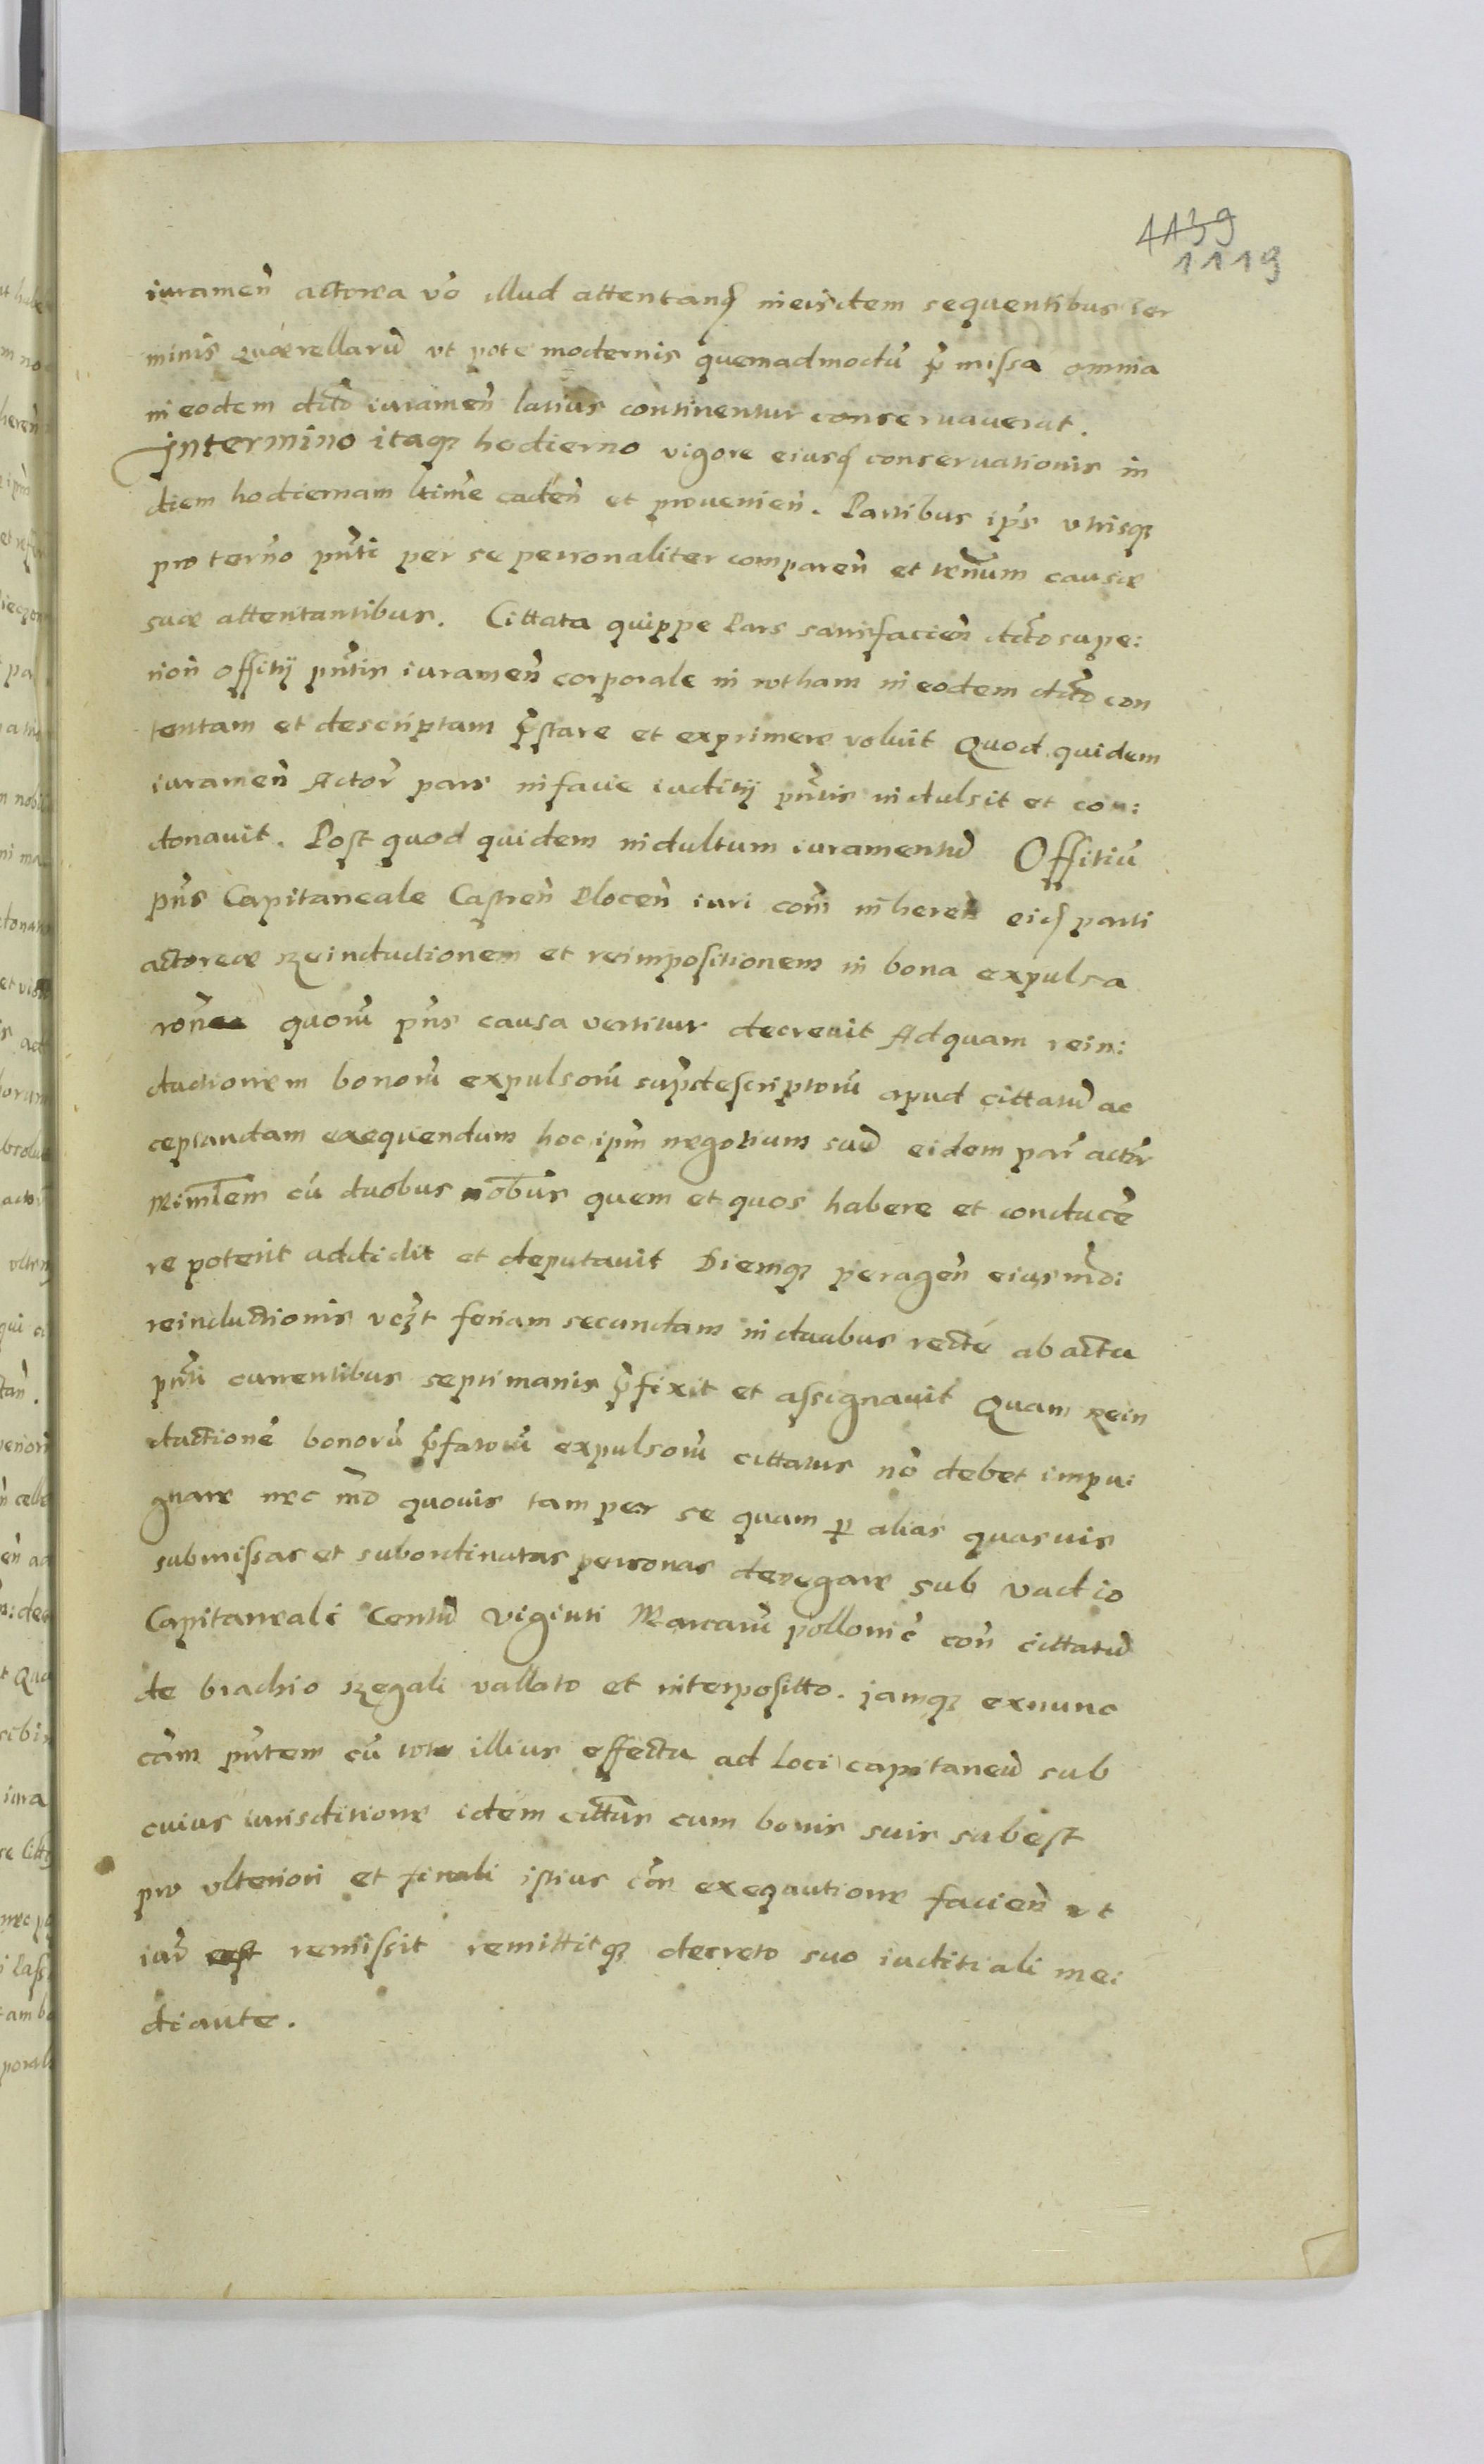 1139
1119
iuramen̄ actorea vō illud attentanꝗ in eisdem sequentibus ter
minis quærellarū vt pote modernis quemadmodū p̄missa omnia
in eodem dcto iuramen̄ latius continentur conservaverat.
Intermino itaqꝫ hodierno vigore eiusꝗ conservationis in
diem hodiernam ltime caden̄ et provenien̄. Partibus ip̄s vtrisqꝫ
pro termo pn̄ti per se personaliter comparen̄ et trn̄um causæ
suæ attentantibus. Cittata quippe Pars satisfacien̄ dcto supe:
rion̄ Offitij pn̄tis iuramen̄ corporale in rotham in eodem dcto con
tentam et descriptam p̄stare et exprimere voluit Quod quidem
iuramen̄ Actor̄ pars in facie iuditij pn̄tis indulsit et con:
donavit. Post quod quidem indultum iuramentū Offitiū
pn̄s Capitaneale Castren̄ Plocen̄ iuri com̄ inheren̄ eiꝗ parti
actoreæ Reinductionem et reimpositionem in bona expulsa
rōne quorū pn̄s causa vertitur decrevit Ad quam rein:
ductionem bonorū expulsorū sup̄descriptorū apud cittatū ac
ceptandam exequendum hoc ipm̄ negotium suū eidem par̄ actor̄
Minrlem cū duobus nobūs quem et quos habere et conducē
re poterit addidit et deputavit Diemqꝫ peragen̄ eiusmdi
reinductionis vcꝫt feriam secundam in duabus recté ab actu
pn̄ti currentibus septimanis p̄fixit et assignavit Quam Rein
ductionē bonorū p̄fatorū expulsorū cittatus nō debet impu:
gnare nec mo quovis tam per se quam ꝑ alias quasvis
submissas et subordinatas personas denegare sub vadio
Capitaneali Centū Viginti Marcarū pollonic̄ con̄ cittatū
de brachio Regali vallato et interpositto. jamqꝫ exnunc
cām pn̄tem cū toto illius effectu ad Loci capitaneū sub
cuius iurisditione idem cittūs cum bonis suis subest
pro vlteriori et finali istius cōn exequutione facien̄ vt
iur̄ est remissit remittitqꝫ decreto suo iuditiali me:
diante.